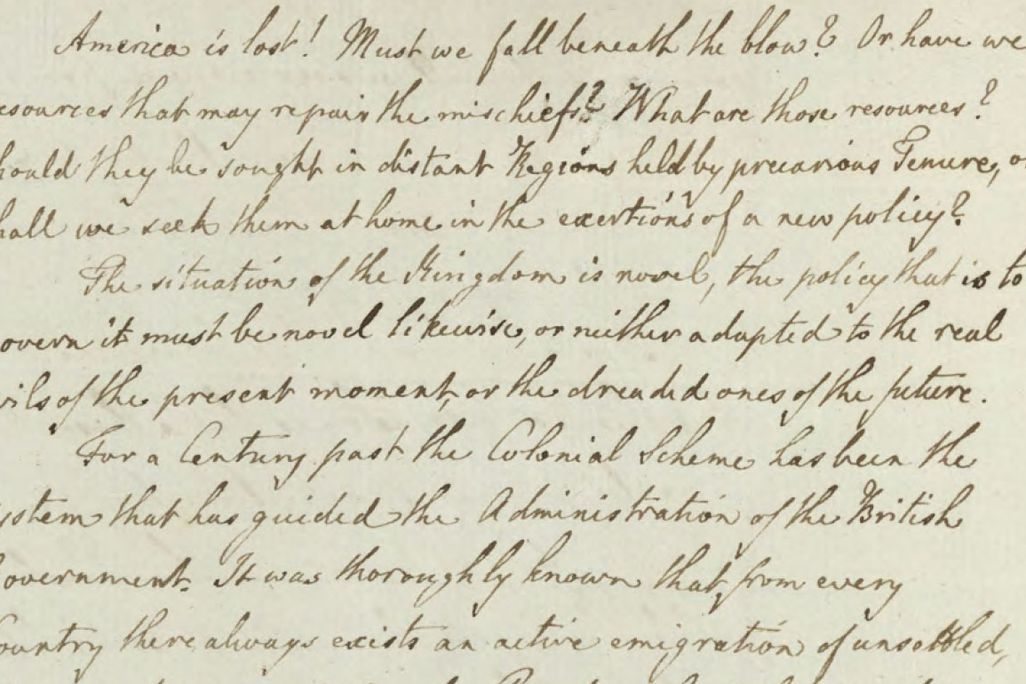 America is lost! Must we fall beneath the blow? Or have we
esources that may repair the mischief? What are those resources?
hould they be sought in distant Regions held by precarious Tenure, or
hall we seek them at home in the exertions of a new policy?
The situation of the Kingdom is novel, the policy that is to
overn it must be novel likewise, or neither adapted to the real
vils of the present moment, or the dreaded ones of the future.
For a Century past the Colonial Scheme has been the
ystem that has guided the Administration of the British
overnment. It was thoroughly known that, from every
ountry there always exists an active emigration of unsettled,